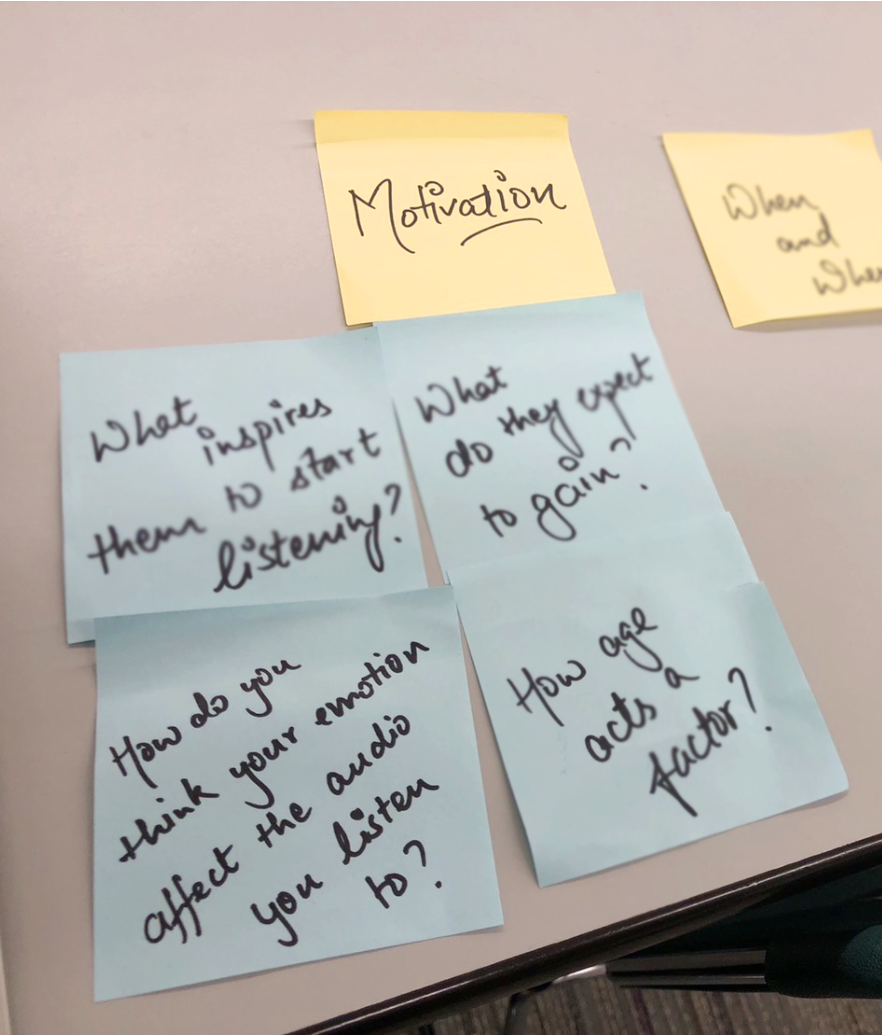 Motivation
When
and
What
inspires
them to start
listening?
What
do they expect
to gain?
How do you
think your emotion
affect the audio
you listen
to?
How age
acts a
factor?